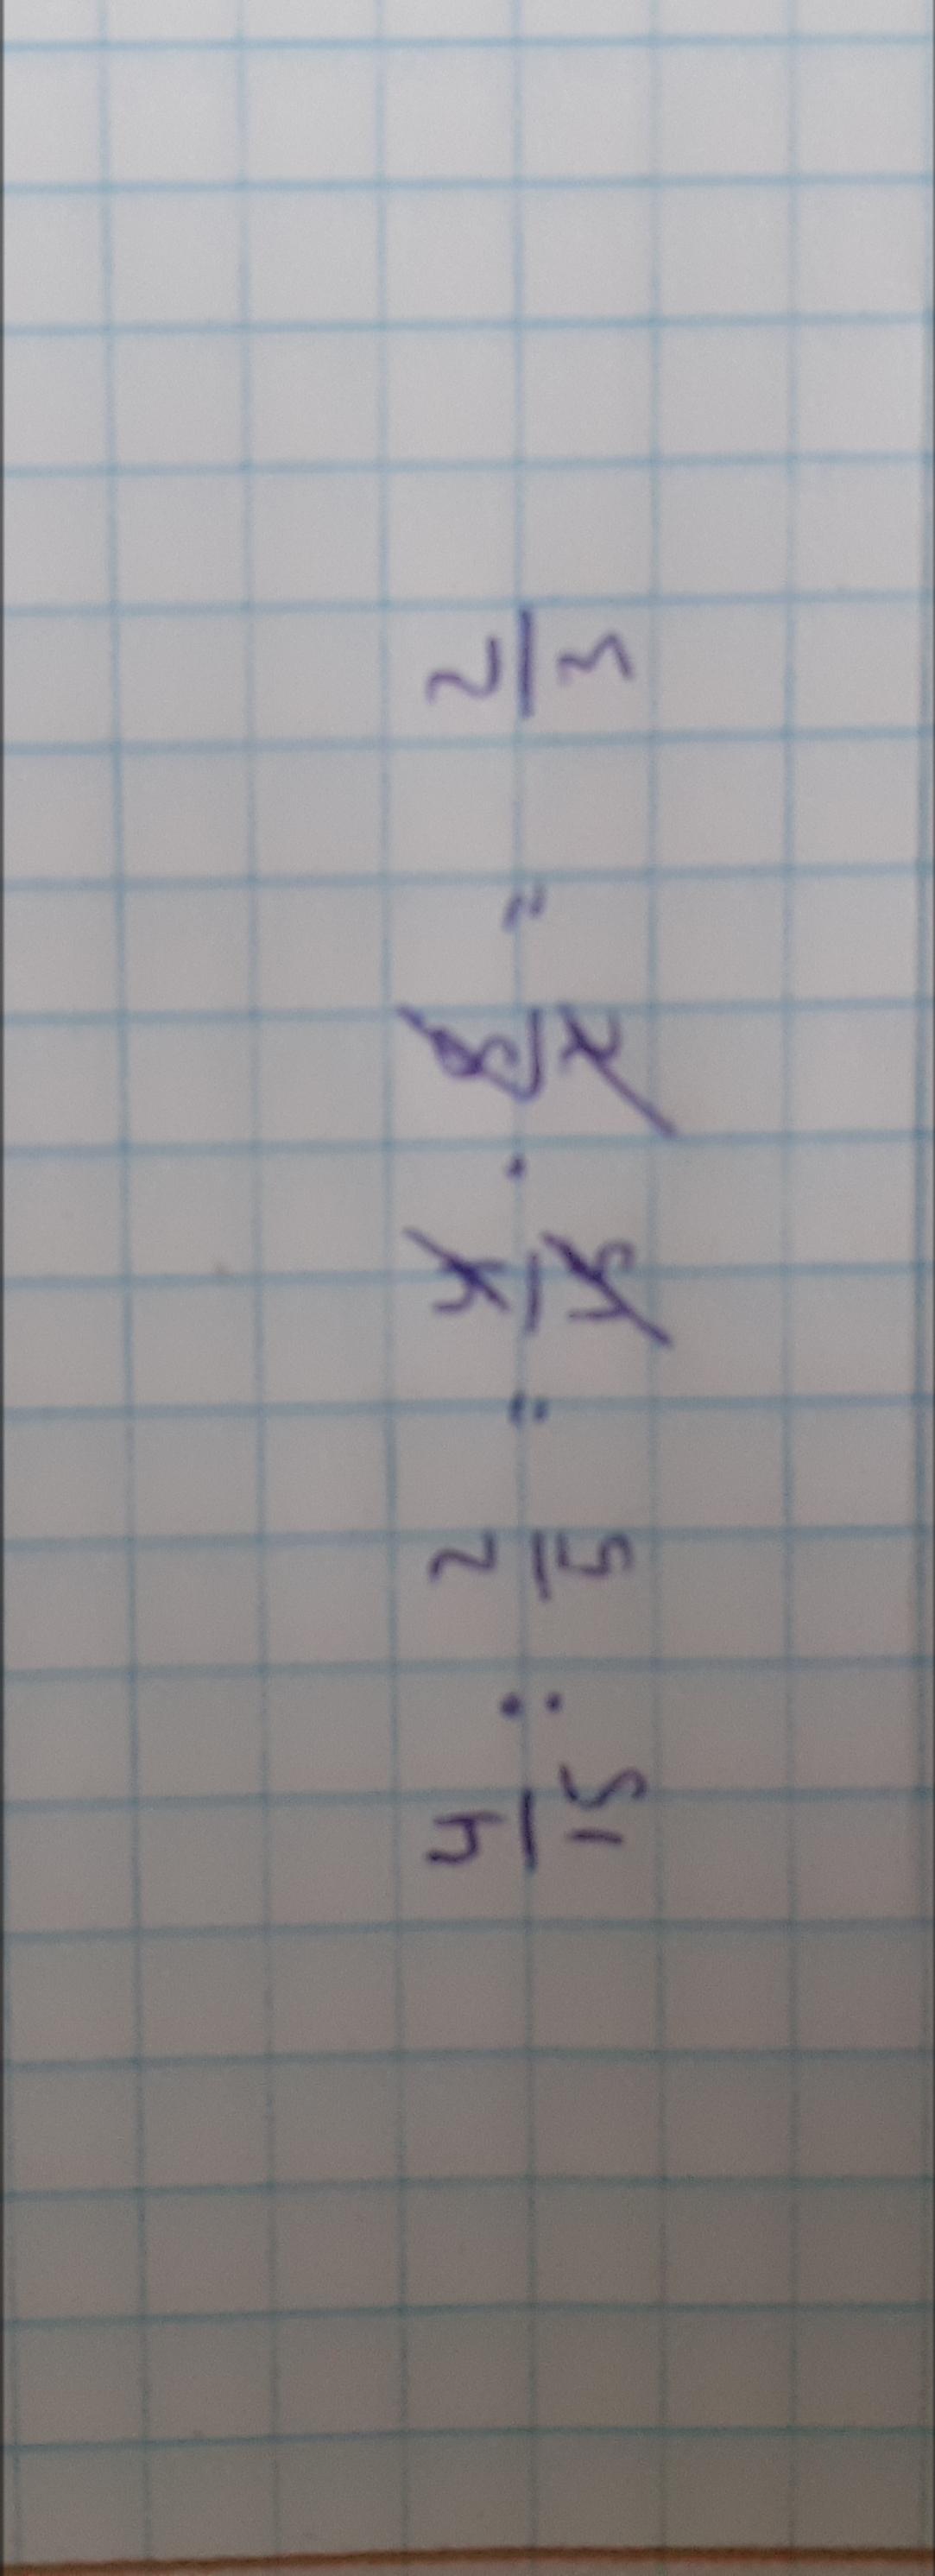 4/15 : 2/5 = 4/15 · 5/2 = 2/3